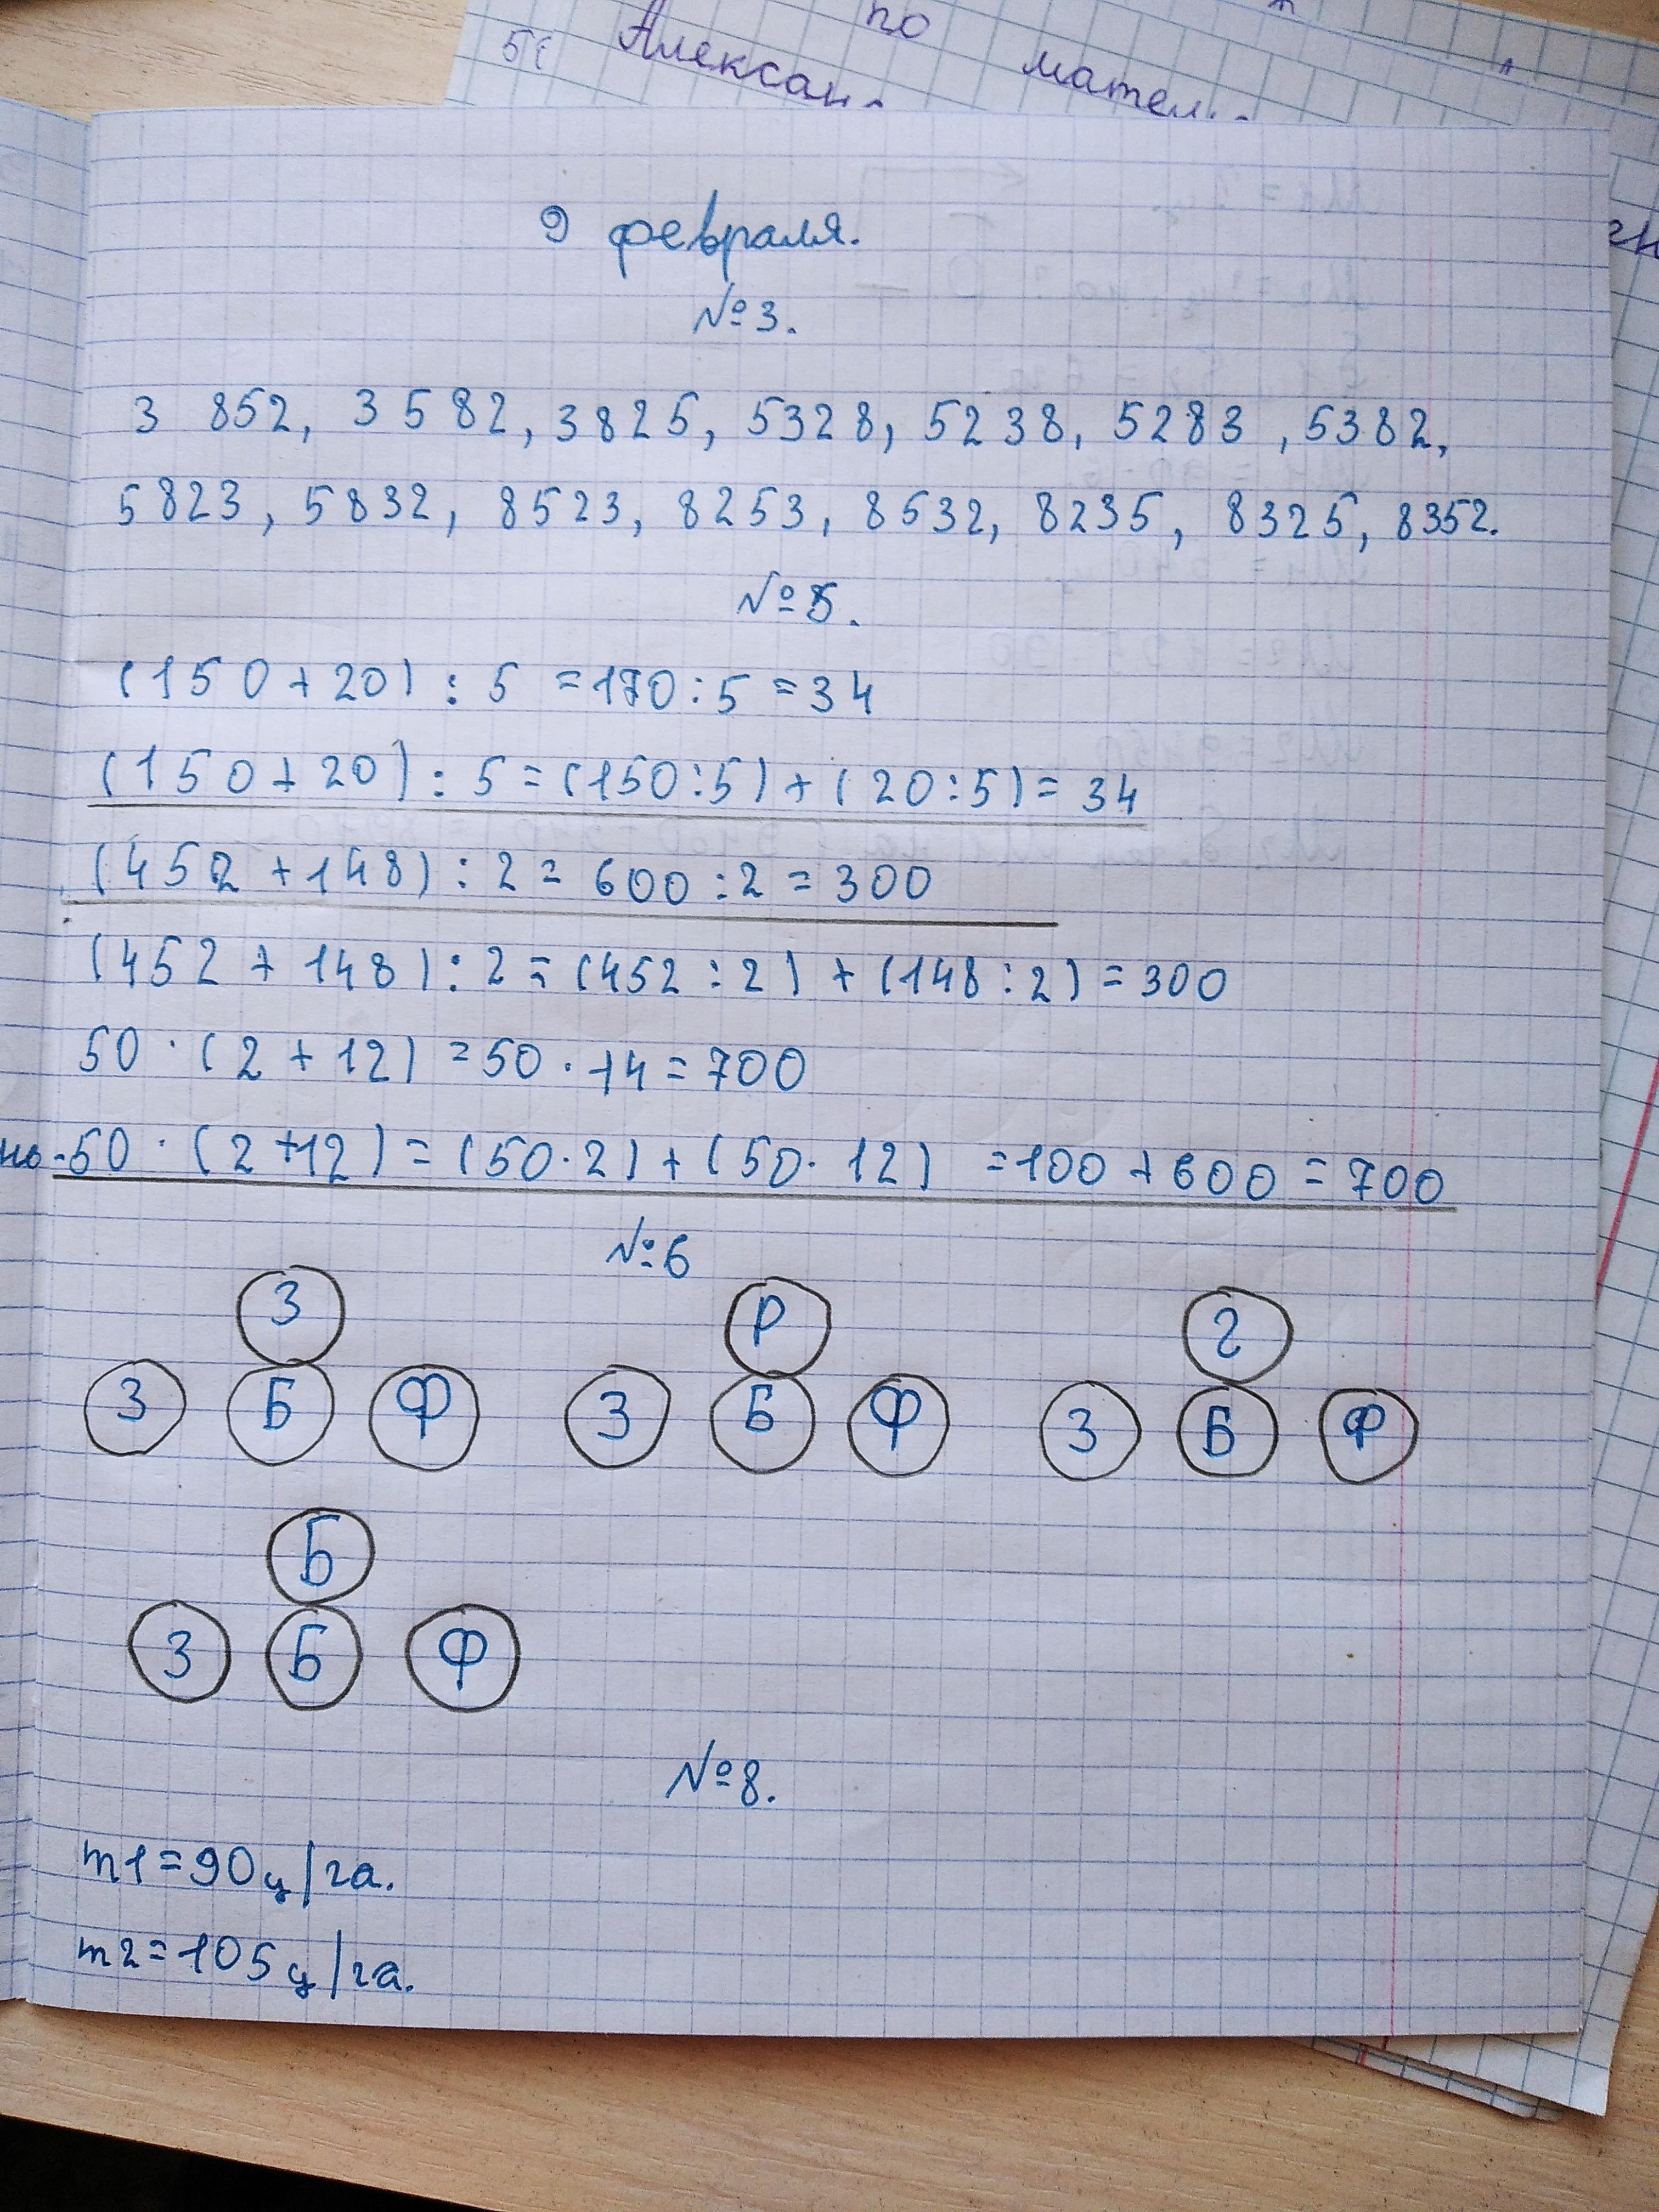 по
Алексан
матем
9 февраля.
№3.
3 852, 3582, 3825, 5328, 5238, 5283, 5382,
5823, 5832, 8523, 8253, 8532, 8235, 8325, 8352.
№5.
(150+20) : 5 =170:5=34
(150+20) : 5=(150:5)+(20:5)=34
(452+148) : 2= 600:2=300
(452+148) : 2=(452:2)+(148:2)=300
50·(2+12) =50·14=700
50·(2+12)=(50·2)+(50·12) =100+600=700
№6
З Р г
З Б Ф З Б Ф З Б Ф
Б
З Б Ф
№8.
m1=90ц/га.
m2=105ц/га.